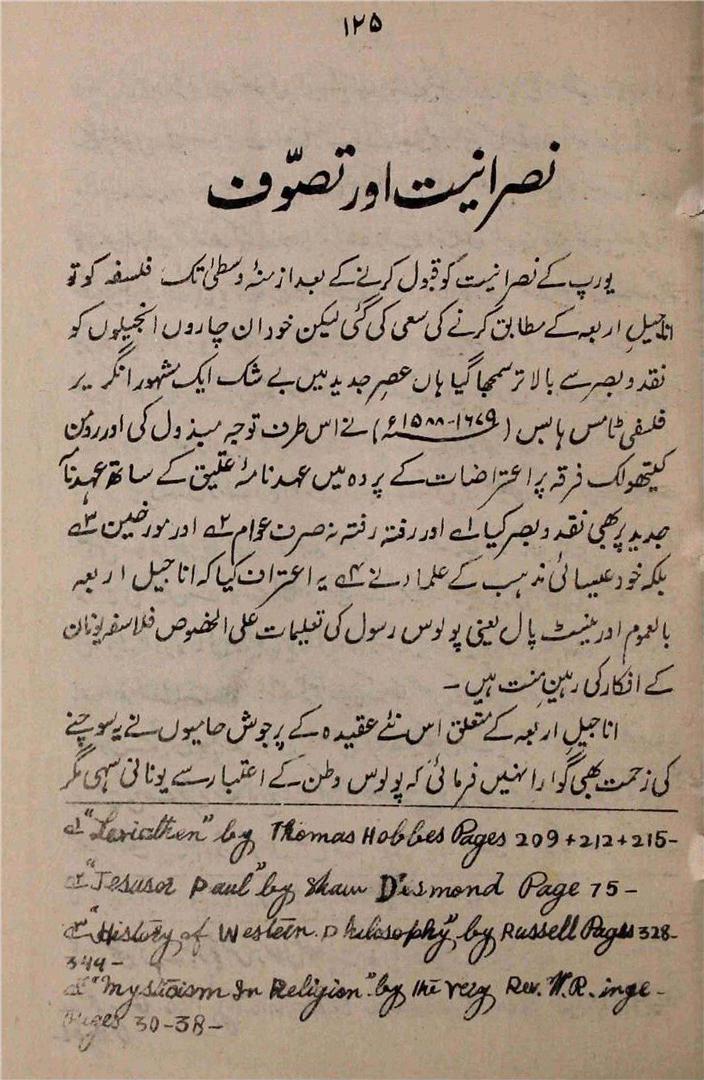 ۱۲۵
نصرانیت اور تصوّف
یورپ کے نصرانیت کو قبول کرنے کے بعد ازمنۂ وسطیٰ تک فلسفہ کو تو
اناجیلِ اربعہ کے مطابق کرنے کی سعی کی گئی لیکن خود ان چاروں انجیلوں کو
نقد و بصر سے بالا تر سمجھا گیا ہاں عصرِ جدید میں بے شک ایک مشہور انگریز
فلسفی ٹامس ہابس (۱۶۷۹-۱۵۸۸ء) نے اس طرف توجہ مبذول کی اور رومن
کیتھولک فرقہ پر اعتراضات کے پردہ میں عہد نامۂ عتیق کے ساتھ عہد نامۂ
جدید پر بھی نقد و بصر کیا ۱ے اور رفتہ رفتہ نہ صرف عوام ۲ے اور مورخین ۳ے
بلکہ خود عیسائی مذہب کے علماء نے ۴ے یہ اعتراف کیا کہ اناجیل اربعہ
بالعموم اور سینٹ پال یعنی پولوس رسول کی تعلیمات علی الخصوص فلاسفہ یونان
کے افکار کی رہینِ منت ہیں ۔
اناجیلِ اربعہ کے متعلق اس نئے عقیدہ کے پرجوش حامیوں نے یہ سوچنے
کی زحمت بھی گوارا نہیں فرمائی کہ پولوس وطن کے اعتبار سے یونانی سہی مگر
۱ے "Leviathen" by Thomas Hobbes Pages 209+212+215-
۲ے "Jesusor Paul" by Shaw Desmond Page 75-
۳ے "History of Western Philosophy", by Russell Pages 328-
344-
۴ے "Mysticism In Religion" by the very Rev. W.R. inge-
Pages 30-38-